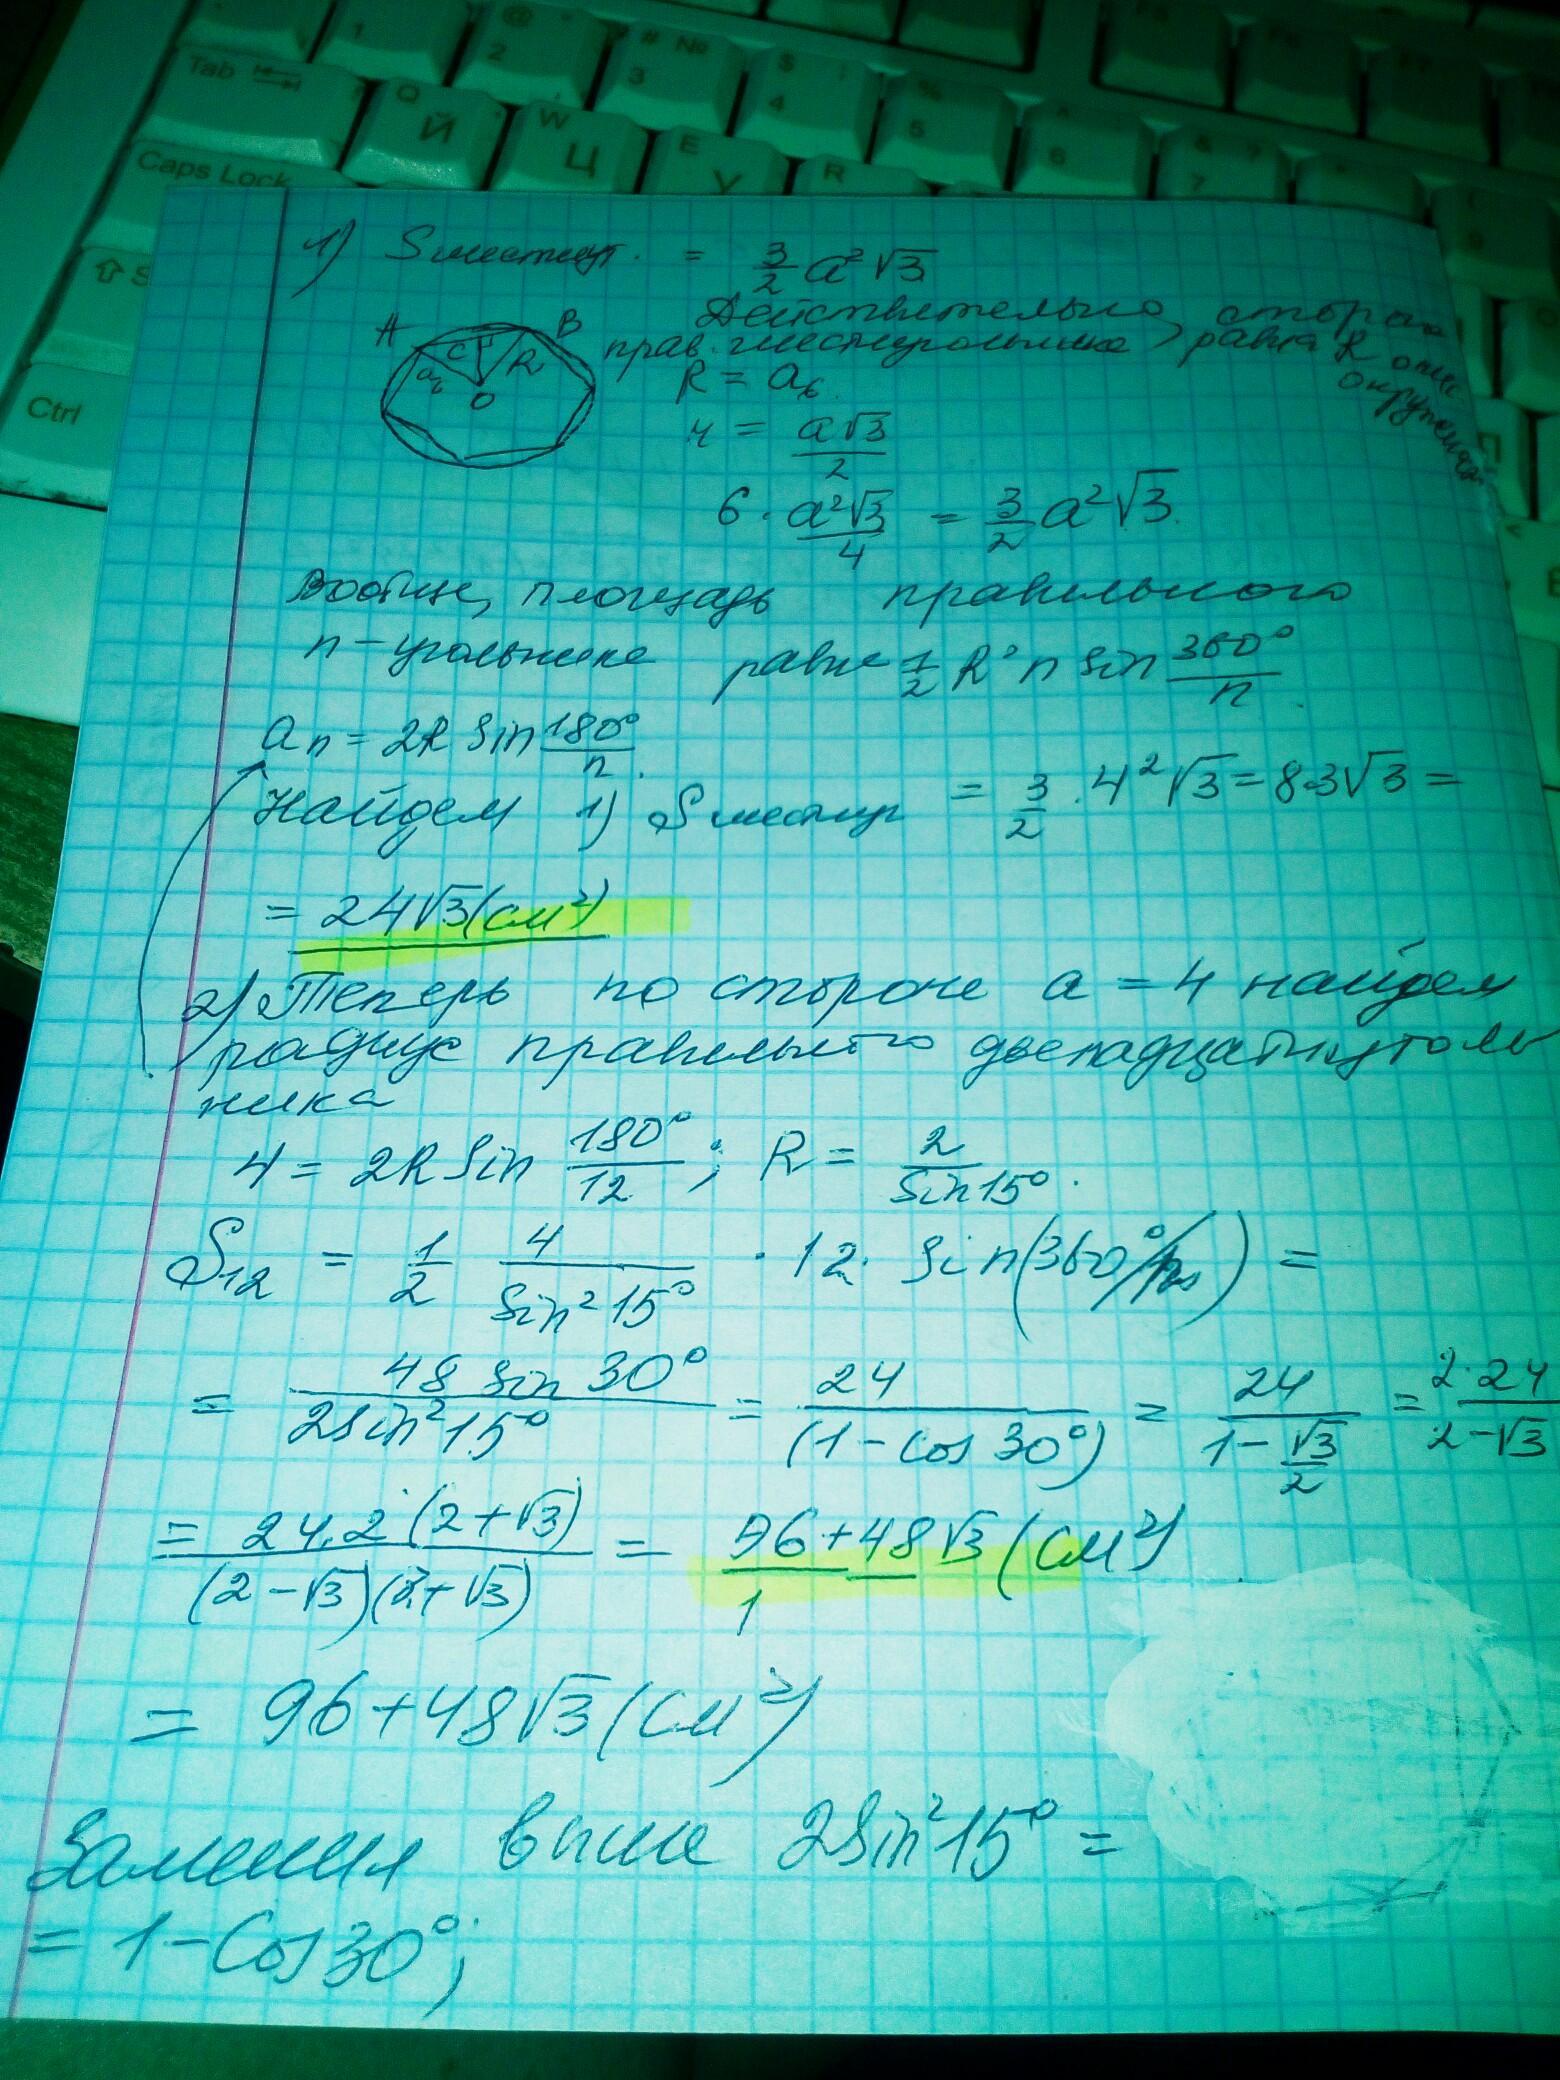 1
@
2
# №
3
$
4
%
5
^
6
& 7
7
Tab
Q
Й
W
Ц
E
У
R
Caps Lock
Ctrl
1) Sшестиуг. = 3/2 a²√3
Действительно, сторона
прав. шестиугольника равна R опис.
окружения
A B C R a₆ O
R = a₆
r = a√3/2
6 · a²√3/4 = 3/2 a²√3.
Вообще, площадь правильного
n-угольника равна 1/2 R² n sin 360°/n.
aₙ = 2R sin 180°/n.
Найдем 1) Sшестиуг = 3/2 · 4²√3 = 8·3√3 =
= 24√3 (см²)
2) Теперь по стороне a = 4 найдем
радиус правильного двенадцатиуголь
ника
4 = 2R sin 180°/12; R = 2/sin15°.
S₁₂ = 1/2 4/sin²15° · 12 · sin(360°/12) =
= 48 sin 30°/2sin²15° = 24/(1-cos 30°) = 24/(1-√3/2) = 2·24/(2-√3)
= 24·2(2+√3)/(2-√3)(2+√3) = 96+48√3/1 (см²)
= 96+48√3 (см²)
Заменил выше 2sin²15° =
= 1-cos30°;